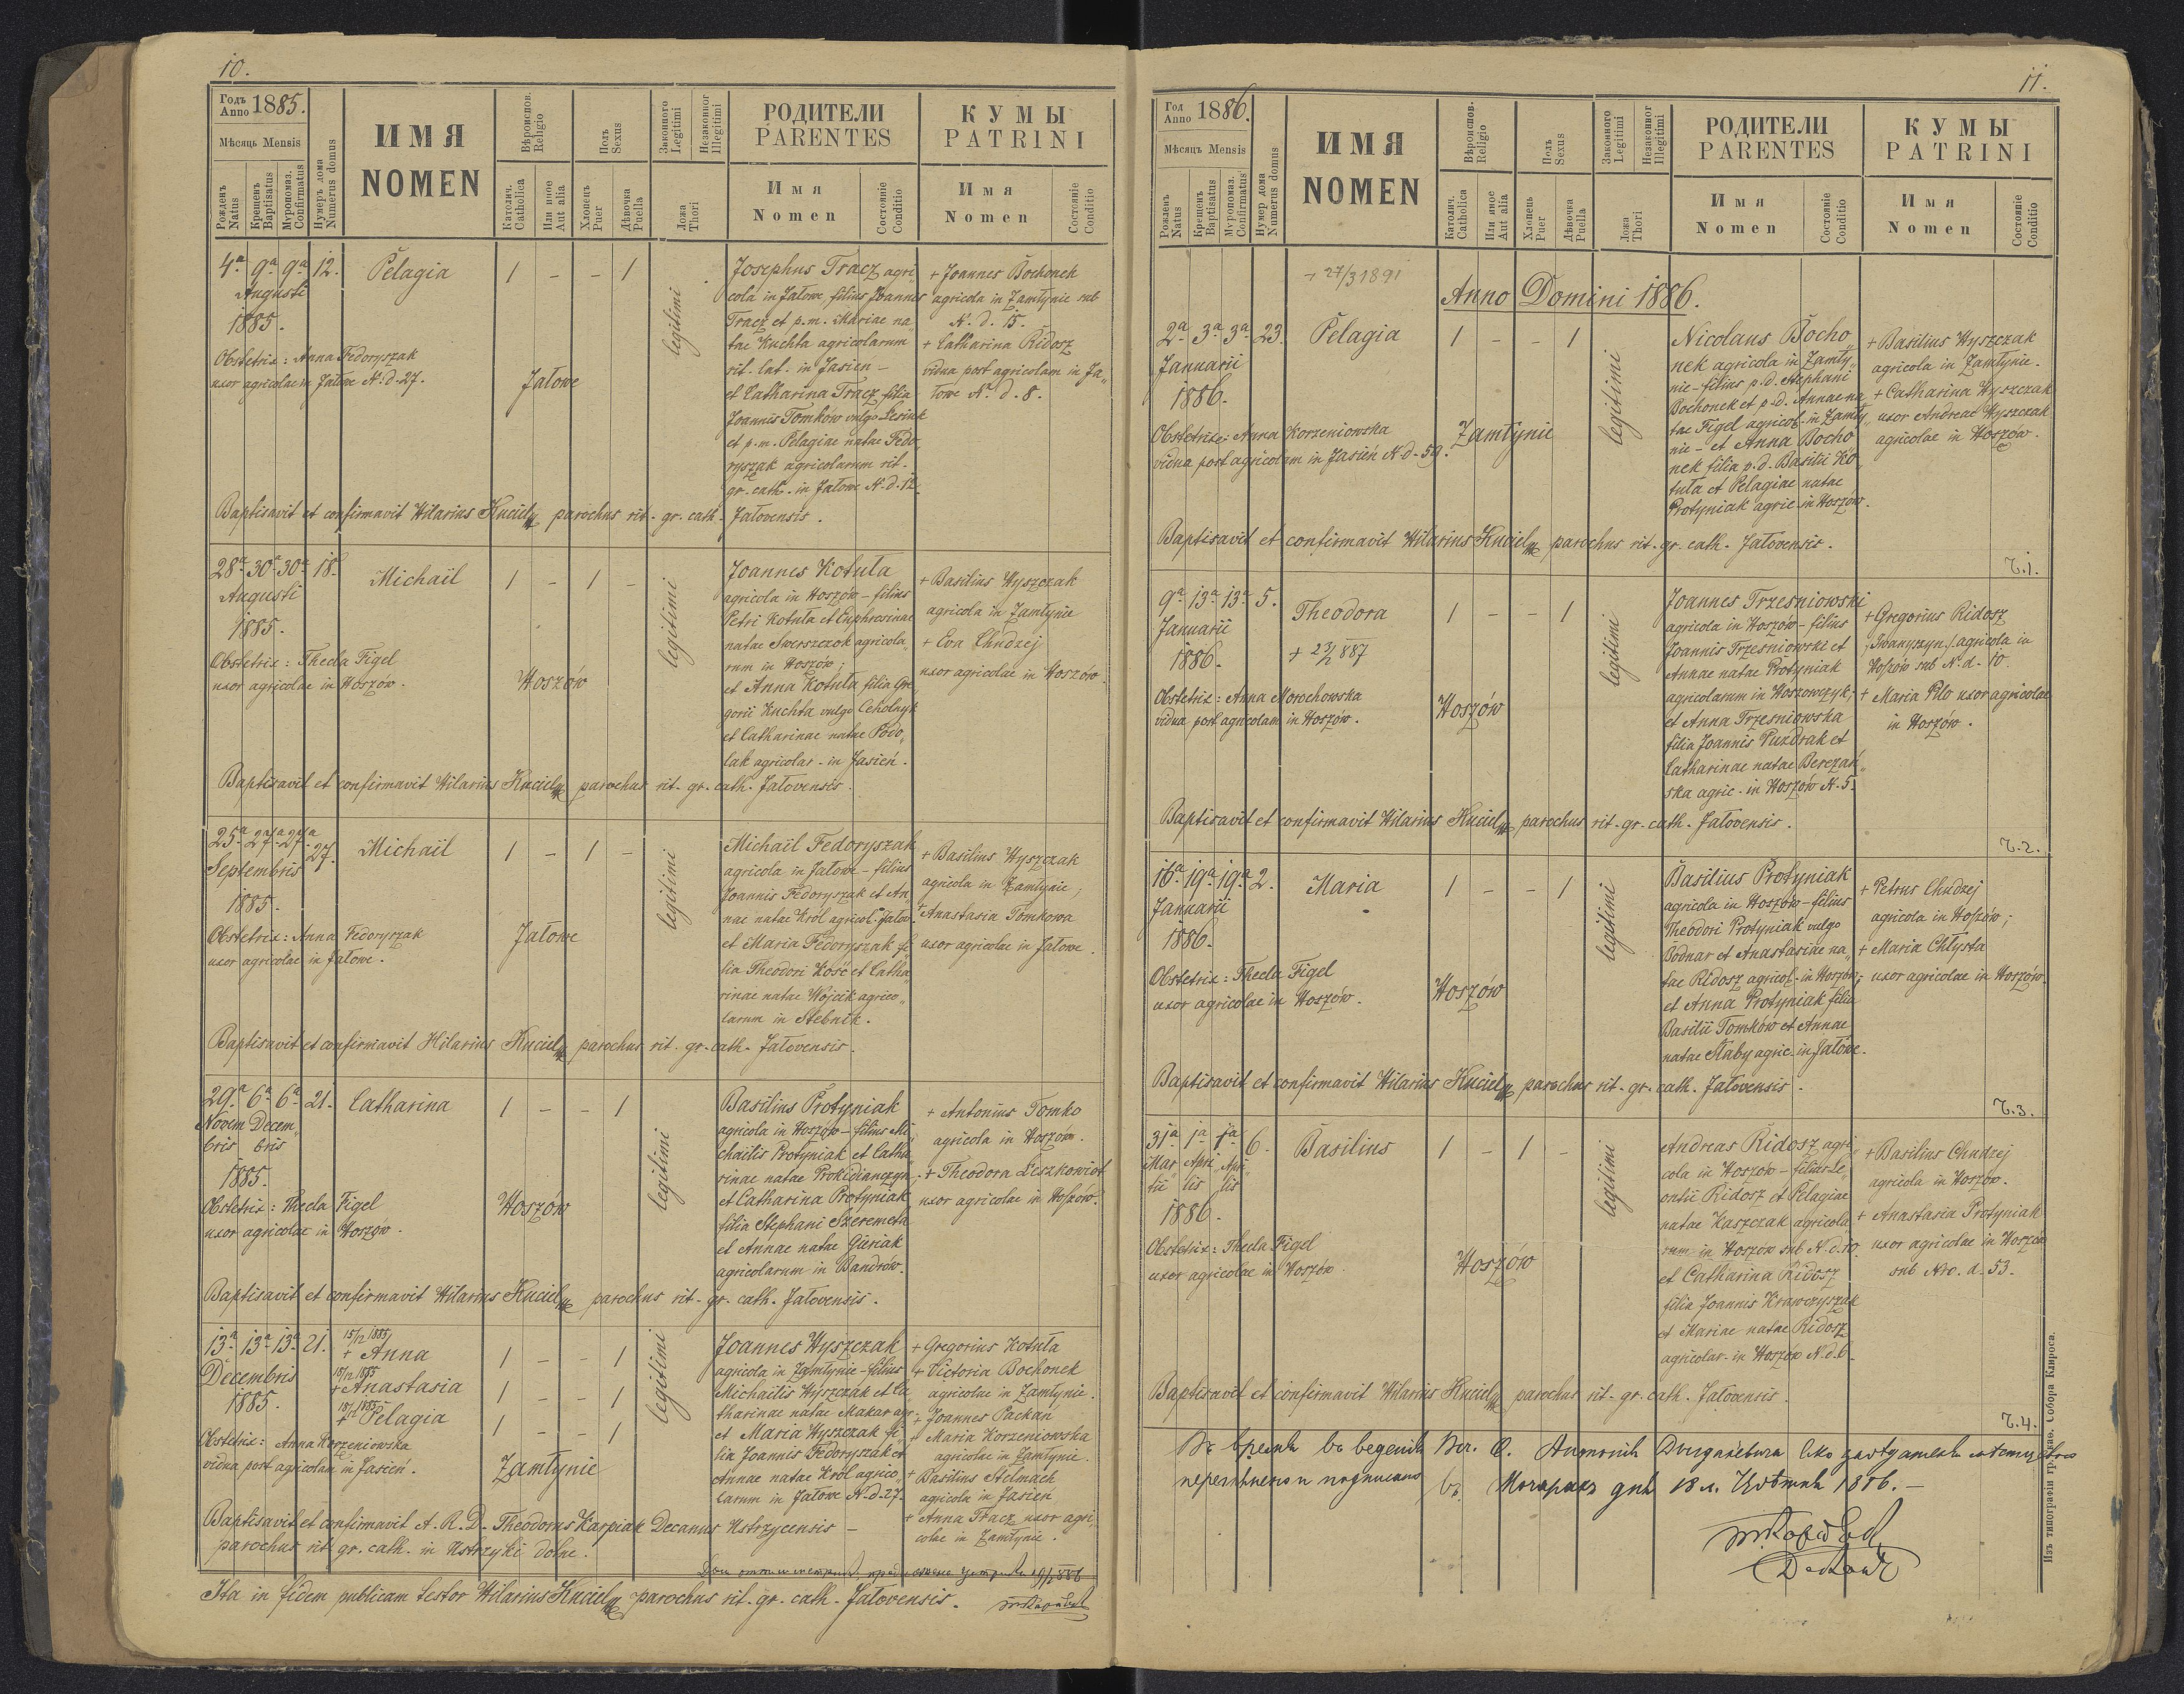 10.
Годъ Anno 1885.
Мѣсяць Mensis
Рожденъ Natus
Крещенъ Baptisatus
Муропомаз. Confirmatus
Нумеръ дома Numerus domus
ИМЯ
NOMEN
Вѣроиспов. Religio
Католич. Catholica
Или иное Aut alia
Полъ Sexus
Хлопець Puer
Дѣвочка Puella
Законного Legitimi
Незаконног Illegitimi
Ложа Thori
РОДИТЕЛИ
PARENTES
Имя Nomen
Состояніе Conditio
КУМЫ
PATRINI
Имя Nomen
Состояніе Conditio
4a 9a 9a 12. Pelagia 1 - - 1
Augusti
1885.
Obstetrix: Anna Fedoryszak
uxor agricolae in Jałowe N. d. 27.
Jałowe
legitimi
Josephus Tracz agri„
cola in Jałowe, filius Joannis
Tracz et p.m. Mariae na„
tae Kuchta agricolarum
rit. lat. in Jasien -
et Catharina Tracz filia
Joannis Tomków vulgo Lesiuk
et p.m. Pelagiae natae Fedo„
ryszak agricolarum rit.
gr. cath. in Jałowe N. d. 12.
+ Joannes Bochonek
agricola in Zamłynie sub
N. d. 15.
+ Catharina Ridosz
vidua post agricolam in Ja„
łowe N. d. 8.
Baptisavit et confirmavit Hilarius Kuciel parochus rit. gr. cath. Jałovensis.
28a 30a 30a 18. Michaïl 1 - 1 -
Augusti
1885.
Obstetrix: Thecla Figel
uxor agricolae in Hoszów.
Hoszów
legitimi
Joannes Kotuła
agricola in Hoszów - filius
Petri Kotuła et Euphrosinae
natae Swerszczok agricola„
rum in Hoszów;
et Anna Kotuła filia Gre„
gorii Kuchta vulgo Ceholnyk
et Catharinae natae Podo„
lak agricolar. in Jasień.
+ Basilius Wyszczak
agricola in Zamłynie
+ Eva Chudzej
uxor agricolae in Hoszów.
Baptisavit et confirmavit Hilarius Kuciel parochus rit. gr. cath. Jałovensis.
25a 27a 27a 27. Michaïl 1 - 1 -
Septembris
1885.
Obstetrix: Anna Fedoryszak
uxor agricolae in Jałowe.
Jałowe
legitimi
Michaïl Fedoryszak
agricola in Jałowe - filius
Joannis Fedoryszak et An„
nae natae Król agricol. Jałow.
et Maria Fedoryszak fi„
lia Theodori Kość et Catha„
rinae natae Wojcik agrico„
larum in Stebnik.
+ Basilius Wyszczak
agricola in Zamłynie;
+ Anastasia Tomkowa
uxor agricolae in Jałowe.
Baptisavit et confirmavit Hilarius Kuciel parochus rit. gr. cath. Jałovensis.
29a 6a 6a 21. Catharina 1 - - 1
Novem Decem„
bris bris
1885.
Obstetrix: Thecla Figel
uxor agricolae in Hoszów.
Hoszów
legitimi
Basilius Protyniak
agricola in Hoszów - filius Mi„
chaëlis Protyniak et Catha„
rinae natae Prokidianczyn,
et Catharina Protyniak
filia Stephani Szeremeta
et Annae natae Giesiak
agricolarum in Bandrów.
+ Antonius Tomko
agricola in Hoszów.
+ Theodora Leszkowicz
uxor agricolae in Hoszów.
Baptisavit et confirmavit Hilarius Kuciel parochus rit. gr. cath. Jałovensis.
13a 13a 13a 21. 15/12 1885 + Anna 1 - - 1
Decembris 15/12 1885 + Anastasia 1 - - 1
1885. 18/12 1885 + Pelagia 1 - - 1
Obstetrix: Anna Korzeniowska
vidua post agricolam in Jasień.
Zamłynie
legitimi
Joannes Wyszczak
agricola in Zamłynie - filius
Michaëlis Wyszczak et Ca„
tharinae natae Makar agr.
et Maria Wyszczak fi„
lia Joannis Fedoryszak et
Annae natae Król agrico„
larum in Jałowe N. d. 27.
+ Gregorius Kotuła
+ Victoria Bochonek
agricolae in Zamłynie.
+ Joannes Packan
+ Maria Korzeniowska
agricolae in Zamłynie.
+ Basilius Stelmach
agricola in Jasień
+ Anna Tracz uxor agri„
colae in Zamłynie.
Baptisavit et confirmavit A. R. D. Theodorus Karpiak Decanus Ustrzycensis -
parochus rit. gr. cath. in Ustrzyki dolne.
Ita in fidem publicam testor Hilarius Kuciel parochus rit. gr. cath. Jałovensis.
11.
Год Anno 1886.
Мѣсяць Mensis
Рожденъ Natus
Крещенъ Baptisatus
Муропомаз. Confirmatus
Нумер дома Numerus domus
ИМЯ
NOMEN
Вѣроиспов. Religio
Католич. Catholica
Или иное Aut alia
Полъ Sexus
Хлопець Puer
Дѣвочка Puella
Законного Legitimi
Незаконног Illegitimi
Ложа Thori
РОДИТЕЛИ
PARENTES
Имя Nomen
Состояніе Conditio
КУМЫ
PATRINI
Имя Nomen
Состояніе Conditio
+ 27/3 1891
Anno Domini 1886.
2a 3a 3a 23. Pelagia 1 - - 1
Januarii
1886.
Obstetrix: Anna Korzeniowska
vidua post agricolam in Jasień N. d. 59.
Zamłynie
legitimi
Nicolaus Bocho„
nek agricola in Zamły„
nie - filius p.d. Stephani
Bochonek et p.d. Annae na„
tae Figel agricol. in Zamły„
nie - et Anna Bocho„
nek filia p.d. Basilii Ko„
tuła et Pelagiae natae
Protyniak agric. in Hoszów.
+ Basilius Wyszczak
agricola in Zamłynie.
+ Catharina Wyszczak
uxor Andreae Wyszczak
agricolae in Hoszów.
Baptisavit et confirmavit Hilarius Kuciel parochus rit. gr. cath. Jałovensis.
T.1.
9a 13a 13a 5. Theodora 1 - - 1
Januarii
1886. + 23/2 887
Obstetrix: Anna Morochowska
vidua post agricolam in Hoszów.
Hoszów
legitimi
Joannes Trzesniowski
agricola in Hoszów - filius
Joannis Trzesniowski et
Annae natae Protyniak
agricolarum in Hoszowczyk;
et Anna Trzesniowska
filia Joannis Puzdrak et
Catharinae natae Berezań„
ska agric. in Hoszów N. 5.
+ Gregorius Ridosz
/Iwanyszyn/ agricola in
Hoszów sub N. d. 10.
+ Maria Pilo uxor agricolae
in Hoszów.
Baptisavit et confirmavit Hilarius Kuciel parochus rit. gr. cath. Jałovensis.
T.2.
16a 19a 19a 2. Maria 1 - - 1
Januarii
1886.
Obstetrix: Thecla Figel
uxor agricolae in Hoszów.
Hoszów
legitimi
Basilius Protyniak
agricola in Hoszów - filius
Theodori Protyniak vulgo
Bodnar et Anastasiae na„
tae Ridosz agricol. in Hoszów;
et Anna Protyniak filia
Basilii Tomków et Annae
natae Słaby agric. in Jałowe.
+ Petrus Chudzej
agricola in Hoszów;
+ Maria Chłysta
uxor agricolae in Hoszów.
Baptisavit et confirmavit Hilarius Kuciel parochus rit. gr. cath. Jałovensis.
T.3.
31a 1a 1a 6. Basilius 1 - 1 -
Mar„ Apri„ Apri„
tii lis lis
1886.
Obstetrix: Thecla Figel
uxor agricolae in Hoszów.
Hoszów
legitimi
Andreas Ridosz agri„
cola in Hoszów - filius Le„
ontii Ridosz et Pelagiae
natae Kaszczak agricola„
rum in Hoszów sub N. d. 10.
et Catharina Ridosz
filia Joannis Krawczyszak
et Mariae natae Ridosz
agricolar. in Hoszów N. d. 6.
+ Basilius Chudzej
agricola in Hoszów.
+ Anastasia Protyniak
uxor agricolae in Hoszów
sub Nro. d. 53.
Baptisavit et confirmavit Hilarius Kuciel parochus rit. gr. cath. Jałovensis.
T.4.
1886. —
Изъ типографіи гр. као. Собора Клироса.